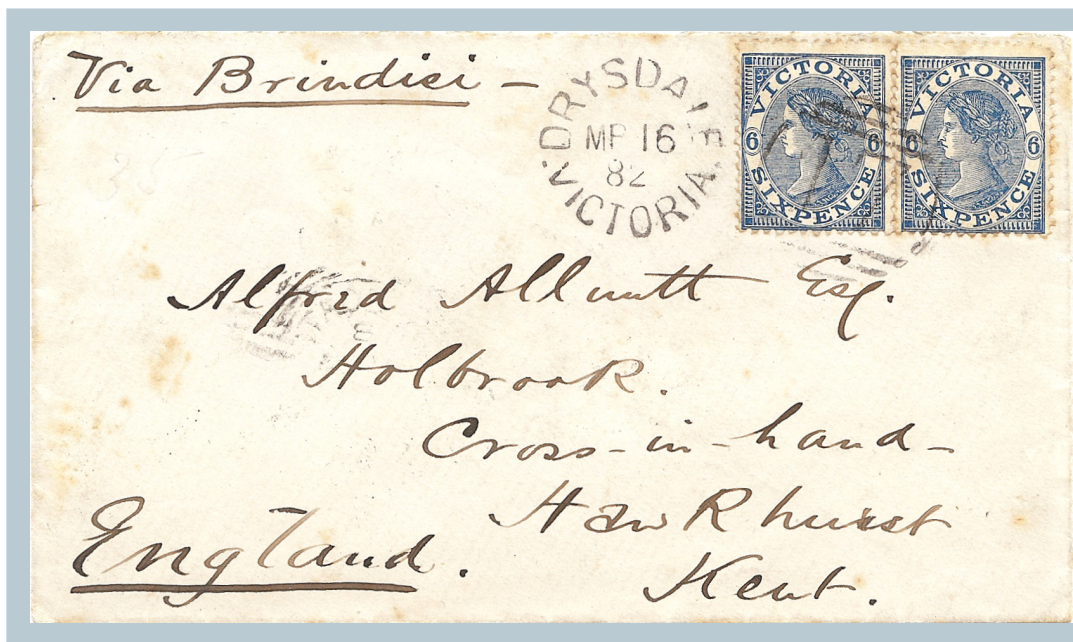 Via Brindisi –
DRYSDALE
MR 16
82
VICTORIA
VICTORIA
6 6
SIXPENCE
VICTORIA
6 6
SIXPENCE
Alfred Allnutt Esq.
Holbrook.
Cross-in-hand-
Hawkhurst
Kent.
England.